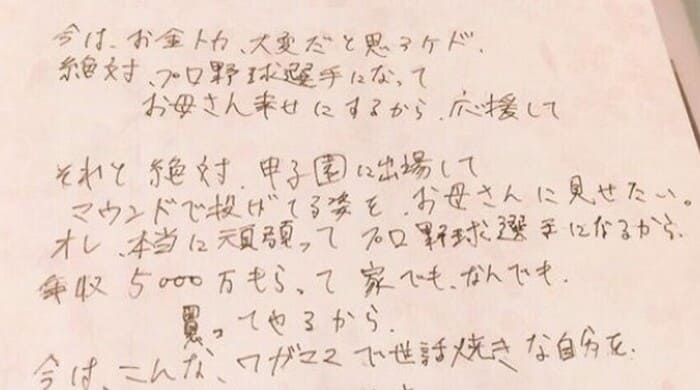 今は、お金トカ、大変だと思うケド、
絶対、プロ野球選手になって
お母さん幸せにするから、応援して
それと絶対、甲子園に出場して
マウンドで投げてる姿を、お母さんに見せたい。
オレ、本当に頑張って プロ野球選手になるから、
年収5000万もらって 家でも、なんでも、
買ってやるから、
今は、こんな、ワガママで世話焼きな自分を、